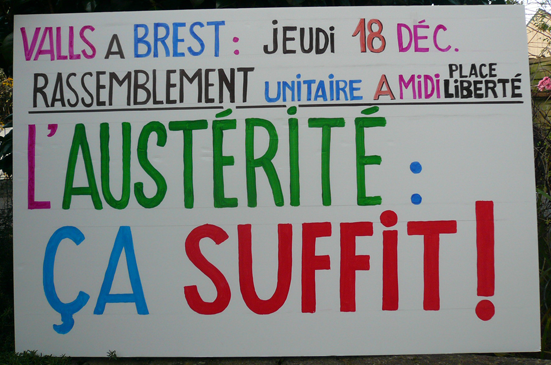 VALLS A BREST : JEUDI 18 DÉC.
RASSEMBLEMENT UNITAIRE A MIDI PLACE LIBERTÉ
L'AUSTÉRITÉ :
ÇA SUFFIT !